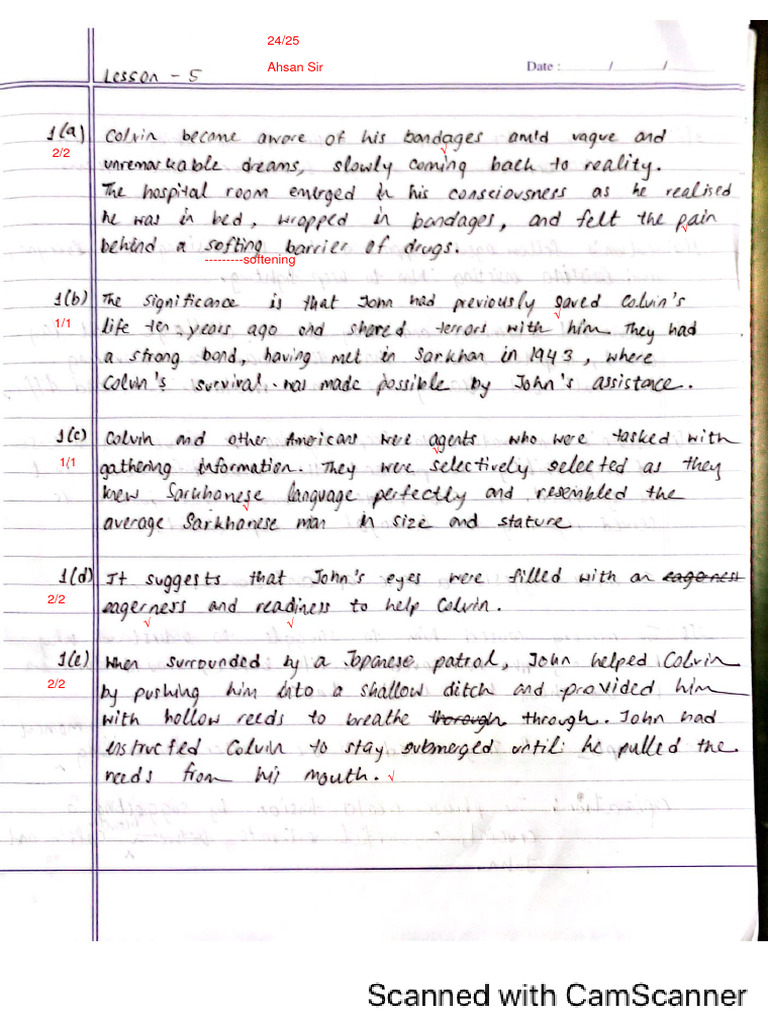 24/25
Ahsan Sir
Date : / /
Lesson - 5
1(a) Colvin became aware of his bandages amid vague and
2/2
unremarkable dreams, slowly coming back to reality.
The hospital room emerged in his consciousness as he realised
he was in bed, wrapped in bandages, and felt the pain
behind a softing barrier of drugs.
---------softening
1(b) The significance is that John had previously saved Colvin's
1/1
life ten years ago and shared terrors with him. They had
a strong bond, having met in Sarkhan in 1943, where
Colvin's survival was made possible by John's assistance.
1(c) Colvin and other Americans were agents who were tasked with
1/1
gathering information. They were selectively selected as they
knew Sarkhanese language perfectly and resembled the
average Sarkhanese man in size and stature
1(d) It suggests that John's eyes were filled with an eagerness
2/2
eagerness and readiness to help Colvin.
1(e) When surrounded by a Japanese patrol, John helped Colvin
2/2
by pushing him into a shallow ditch and provided him
with hollow reeds to breathe thorough through. John had
instructed Colvin to stay submerged until he pulled the
reeds from his mouth.
Scanned with CamScanner